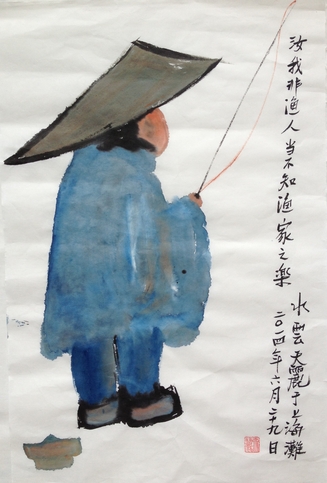 汝我非渔人当不知渔家之樂
水雲天麗于上海灘
二〇一四年六月二十九日